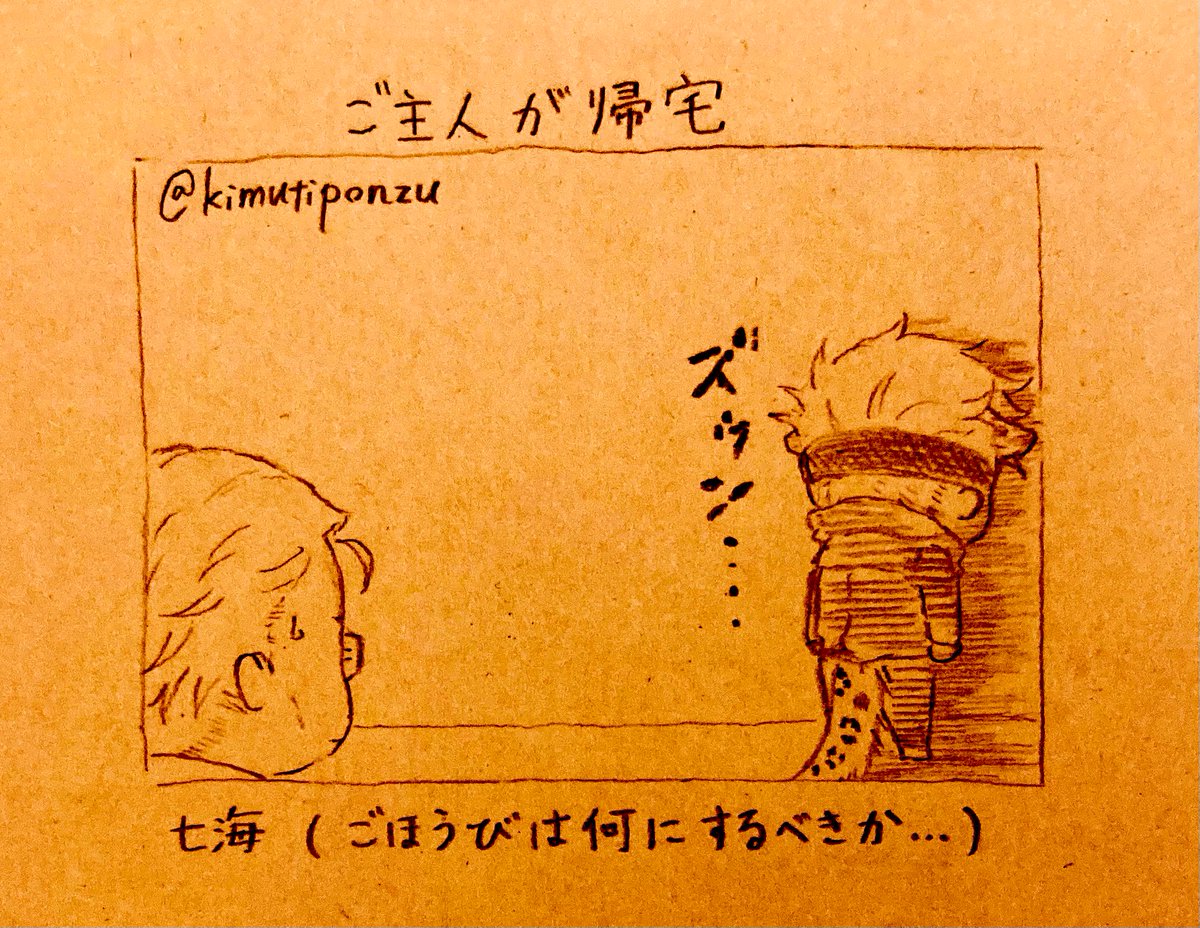 ご主人が帰宅
@kimutiponzu
ズウン....
七海(ごほうびは何にするべきか...)